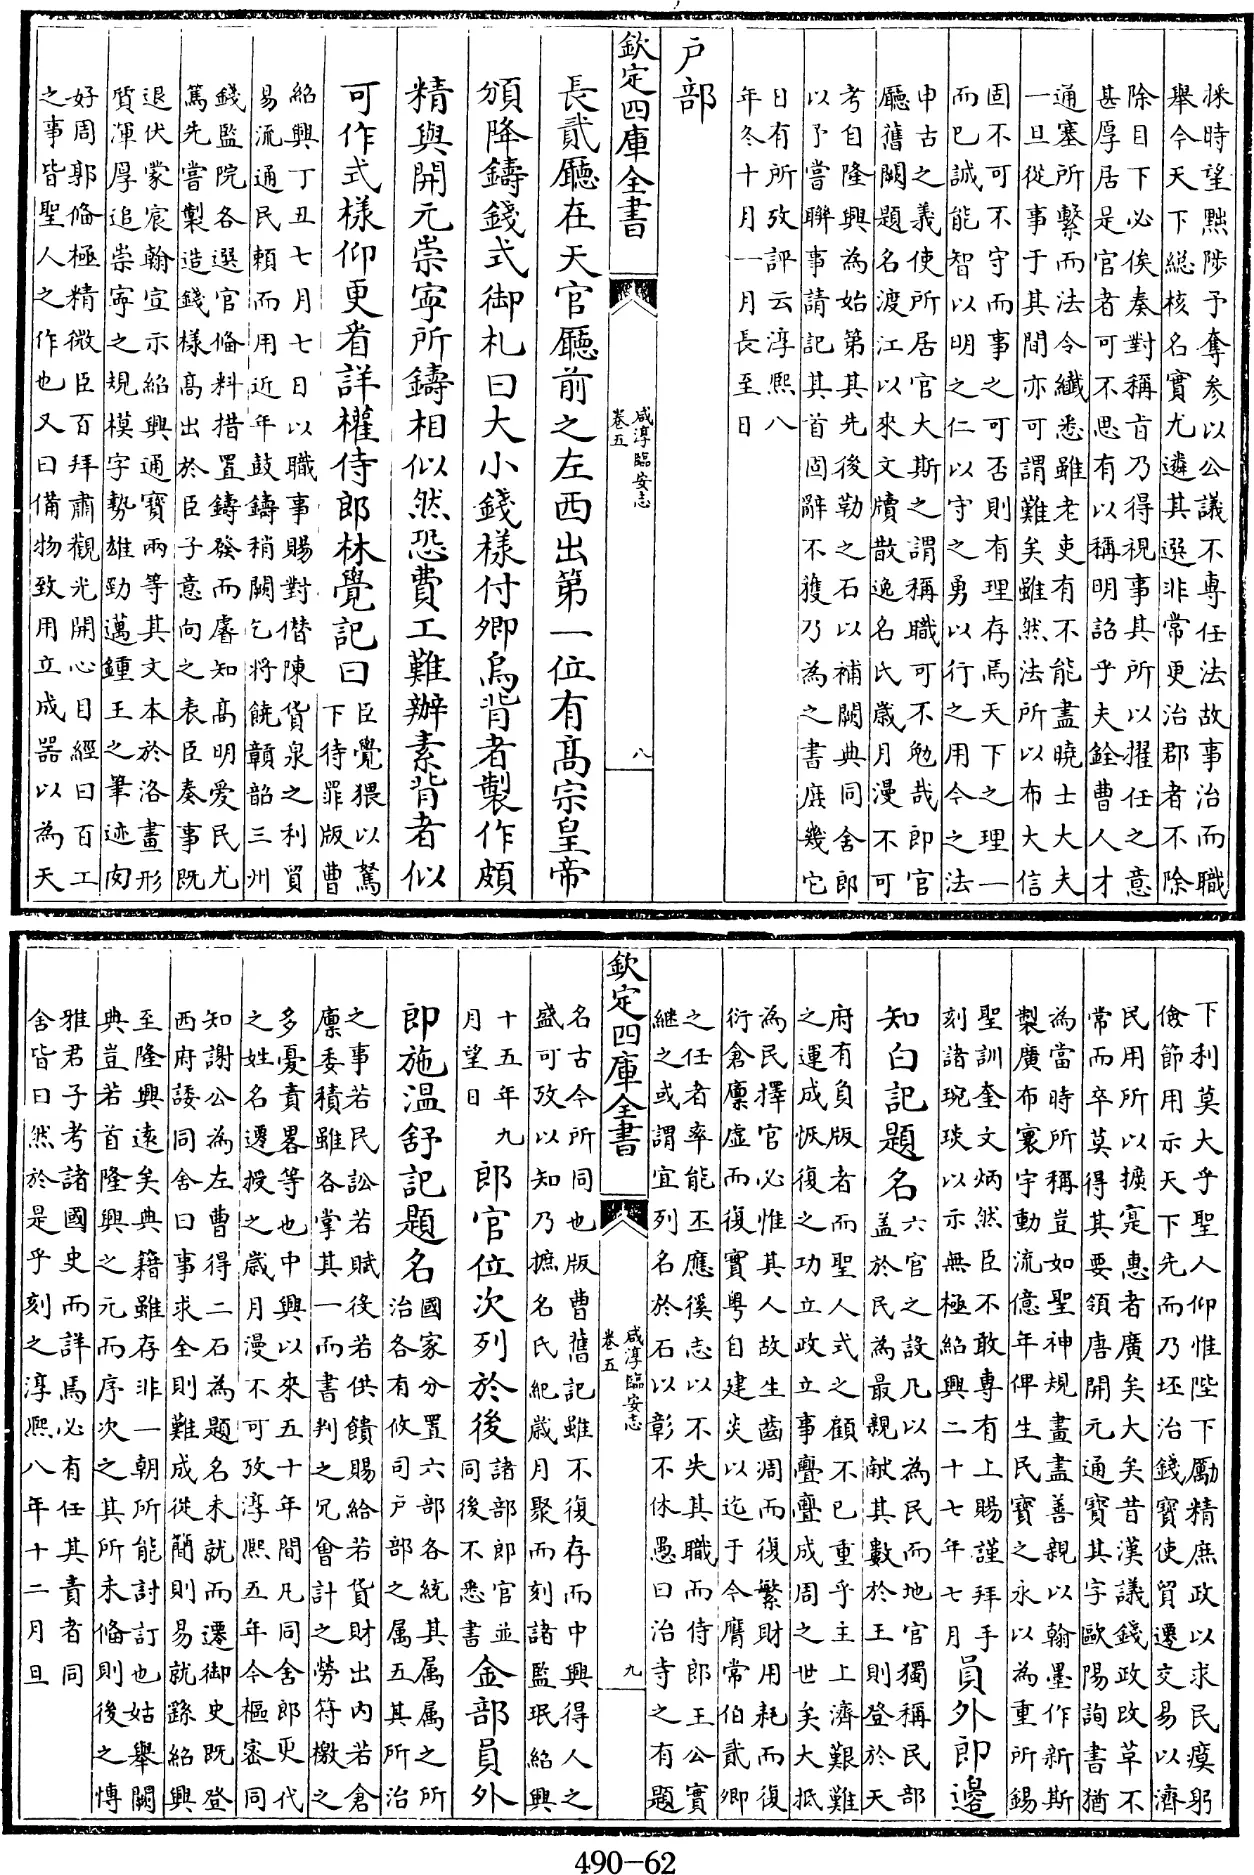 採時望黜陟予奪参以公議不専任法故事治而職
舉今天下総核名實尤遴其選非常更治郡者不除
除目下必俟奏對稱㫖乃得視事其所以擢任之意
甚厚居是官者可不思有以稱明詔乎夫銓曹人才
通塞所繫而法令纎悉雖老吏有不能盡曉士大夫
一旦從事于其間亦可謂難矣雖然法所以布大信
固不可不守而事之可否則有理存焉天下之理一
而已誠能智以明之仁以守之勇以行之用今之法
申古之義使所居官大斯之謂稱職可不勉哉即官
廳舊闕題名渡江以來文牘散逸名氏嵗月漫不可
考自隆興為始第其先後勒之石以補闕典同舍郎
以予嘗聯事請記其首固辭不獲乃為之書庶幾它
日有所攷評云淳熙八
年冬十月一月長至日
户部
欽定四庫全書
咸淳臨安志
卷五
八
長貳廳在天官廳前之左西出第一位有髙宗皇帝
頒降鑄錢式御札曰大小錢様付卿烏背者製作頗
精與開元崇寧所鑄相似然恐費工難辦素背者似
可作式様仰更看詳權侍郎林覺記曰
臣覺猥以駑
下待罪版曹
紹興丁丑七月七日以職事賜對僣陳貨泉之利貿
易流通民頼而用近年鼓鑄稍闕乞將饒贑韶三州
錢監院各選官脩料措置鑄發而睿知髙明愛民尤
篤先嘗製造錢様髙出於臣子意向之表臣奏事既
退伏蒙宸翰宣示紹興通寳兩等其文本於洛畫形
質渾厚追崇寧之規模字勢雄勁邁鍾王之筆迹肉
好周郭脩極精微臣百拜肅觀光開心目經曰百工
之事皆聖人之作也又曰備物致用立成噐以為天
下利莫大乎聖人仰惟陛下勵精庶政以求民瘼躬
儉節用示天下先而乃坯治錢寳使貿遷交易以濟
民用所以擴寛惠者廣矣大矣昔漢議錢政改草不
常而卒莫得其要領唐開元通寳其字歐陽詢書猶
為當時所稱豈如聖神規畫盡善親以翰墨作新斯
製廣布寰宇動流億年俾生民寳之永以為重所錫
聖訓奎文炳然臣不敢専有上賜謹拜手
刻諸琬琰以示無極紹興二十七年七月
員外即邉
知白記題名
六官之設凡以為民而地官獨稱民部
盖於民為最親献其數於王則登於天
府有負版者而聖人式之顧不已重乎主上濟艱難
之運成恢復之功立政立事亹亹成周之世矣大抵
為民擇官必惟其人故生齒凋而復繁財用耗而復
衍倉廪虚而復實粤自建炎以迄于今膺常伯貳卿
之任者率能丕應徯志以不失其職而侍郎王公實
継之或謂宜列名於石以彰不休愚曰治寺之有題
欽定四庫全書
咸淳臨安志
卷五
九
名古今所同也版曹舊記雖不復存而中興得人之
盛可攷以知乃摭名氏紀嵗月聚而刻諸監珉紹興
十五年九
月望日
郎官位次列於後
諸部郎官並
同後不悉書
金部員外
即施温舒記題名
國家分置六部各統其属属之所
治各有攸司户部之属五其所治
之事若民訟若賦役若供饋賜給若貨財出内若倉
廪委積雖各掌其一而書判之冗會計之勞符檄之
多憂責畧等也中興以來五十年間凡同舍郎更代
之姓名遷授之嵗月漫不可攷淳熈五年今樞宻同
知謝公為左曹得二石為題名未就而遷御史既登
西府諉同舍曰事求全則難成從簡則易就繇紹興
至隆興逺矣典籍雖存非一朝所能討訂也姑舉闕
典豈若首隆興之元而序次之其所未俻則後之博
雅君子考諸國史而詳焉必有任其責者同
舍皆曰然於是乎刻之淳熈八年十二月旦
490-62